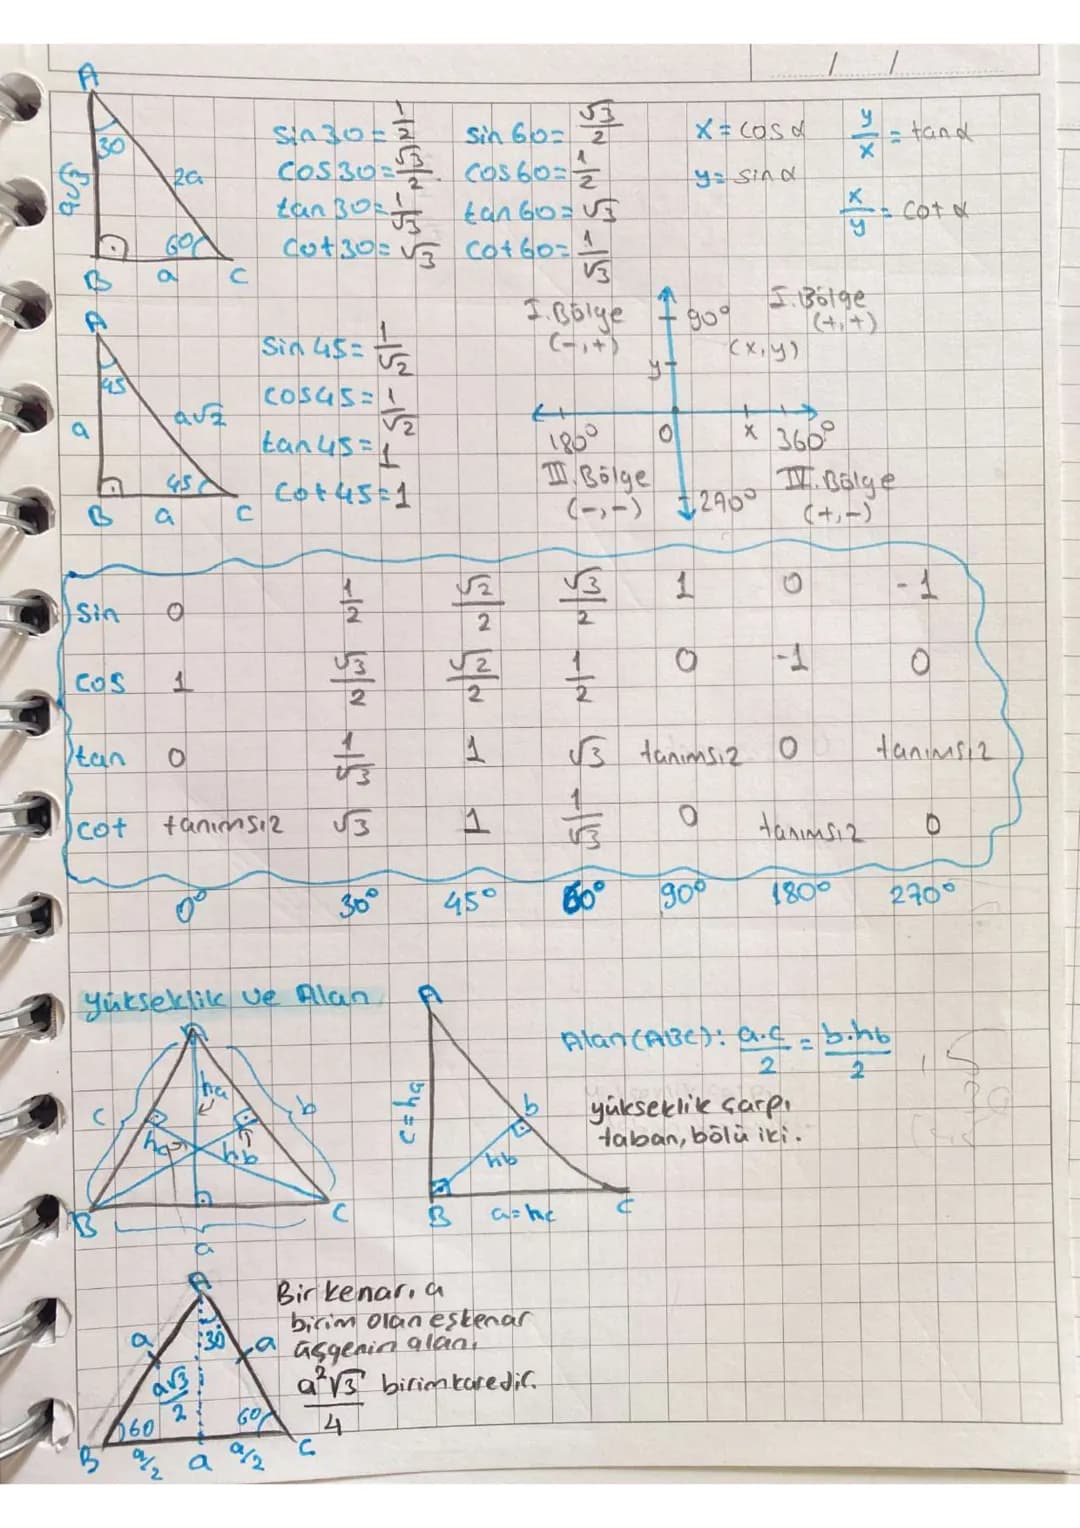 / /
A
30
a√3
2a
60
B a C
sin30 = 1/2
cos30 = √3/2
tan30 = 1/√3
cot30 = √3
sin60 = √3/2
cos60 = 1/2
tan60 = √3
cot60 = 1/√3
x = cosα
y = sinα
y/x = tanα
x/y = cotα
A
45
a
a√2
45
B a C
Sin45 = 1/√2
cos45 = 1/√2
tan45 = 1
Cot45 = 1
I.Bölge
(-,+)
90°
I.Bölge
(+,+)
(x,y)
y
180° 0 x 360°
III.Bölge
(-,-)
270°
IV.Bölge
(+,-)
Sin 0 1/2 √2/2 √3/2 1 0 -1
cos 1 √3/2 √2/2 1/2 0 -1 0
tan 0 1/√3 1 √3 tanımsız 0 tanımsız
cot tanımsız √3 1 1/√3 0 tanımsız 0
0° 30° 45° 60° 90° 180° 270°
Yükseklik ve Alan
A
c
ha
b
hc
hb
B C
a
A
c=ha
b
hb
B a=hc C
Alan(ABC): a.c/2 = b.hb/2
yükseklik çarpı
taban, bölü iki.
A
30
a a
a√3/2
60 60
B a/2 a a/2 C
Bir kenarı a
birim olan eşkenar
üçgenin alanı
a²√3/4 birimkaredir.